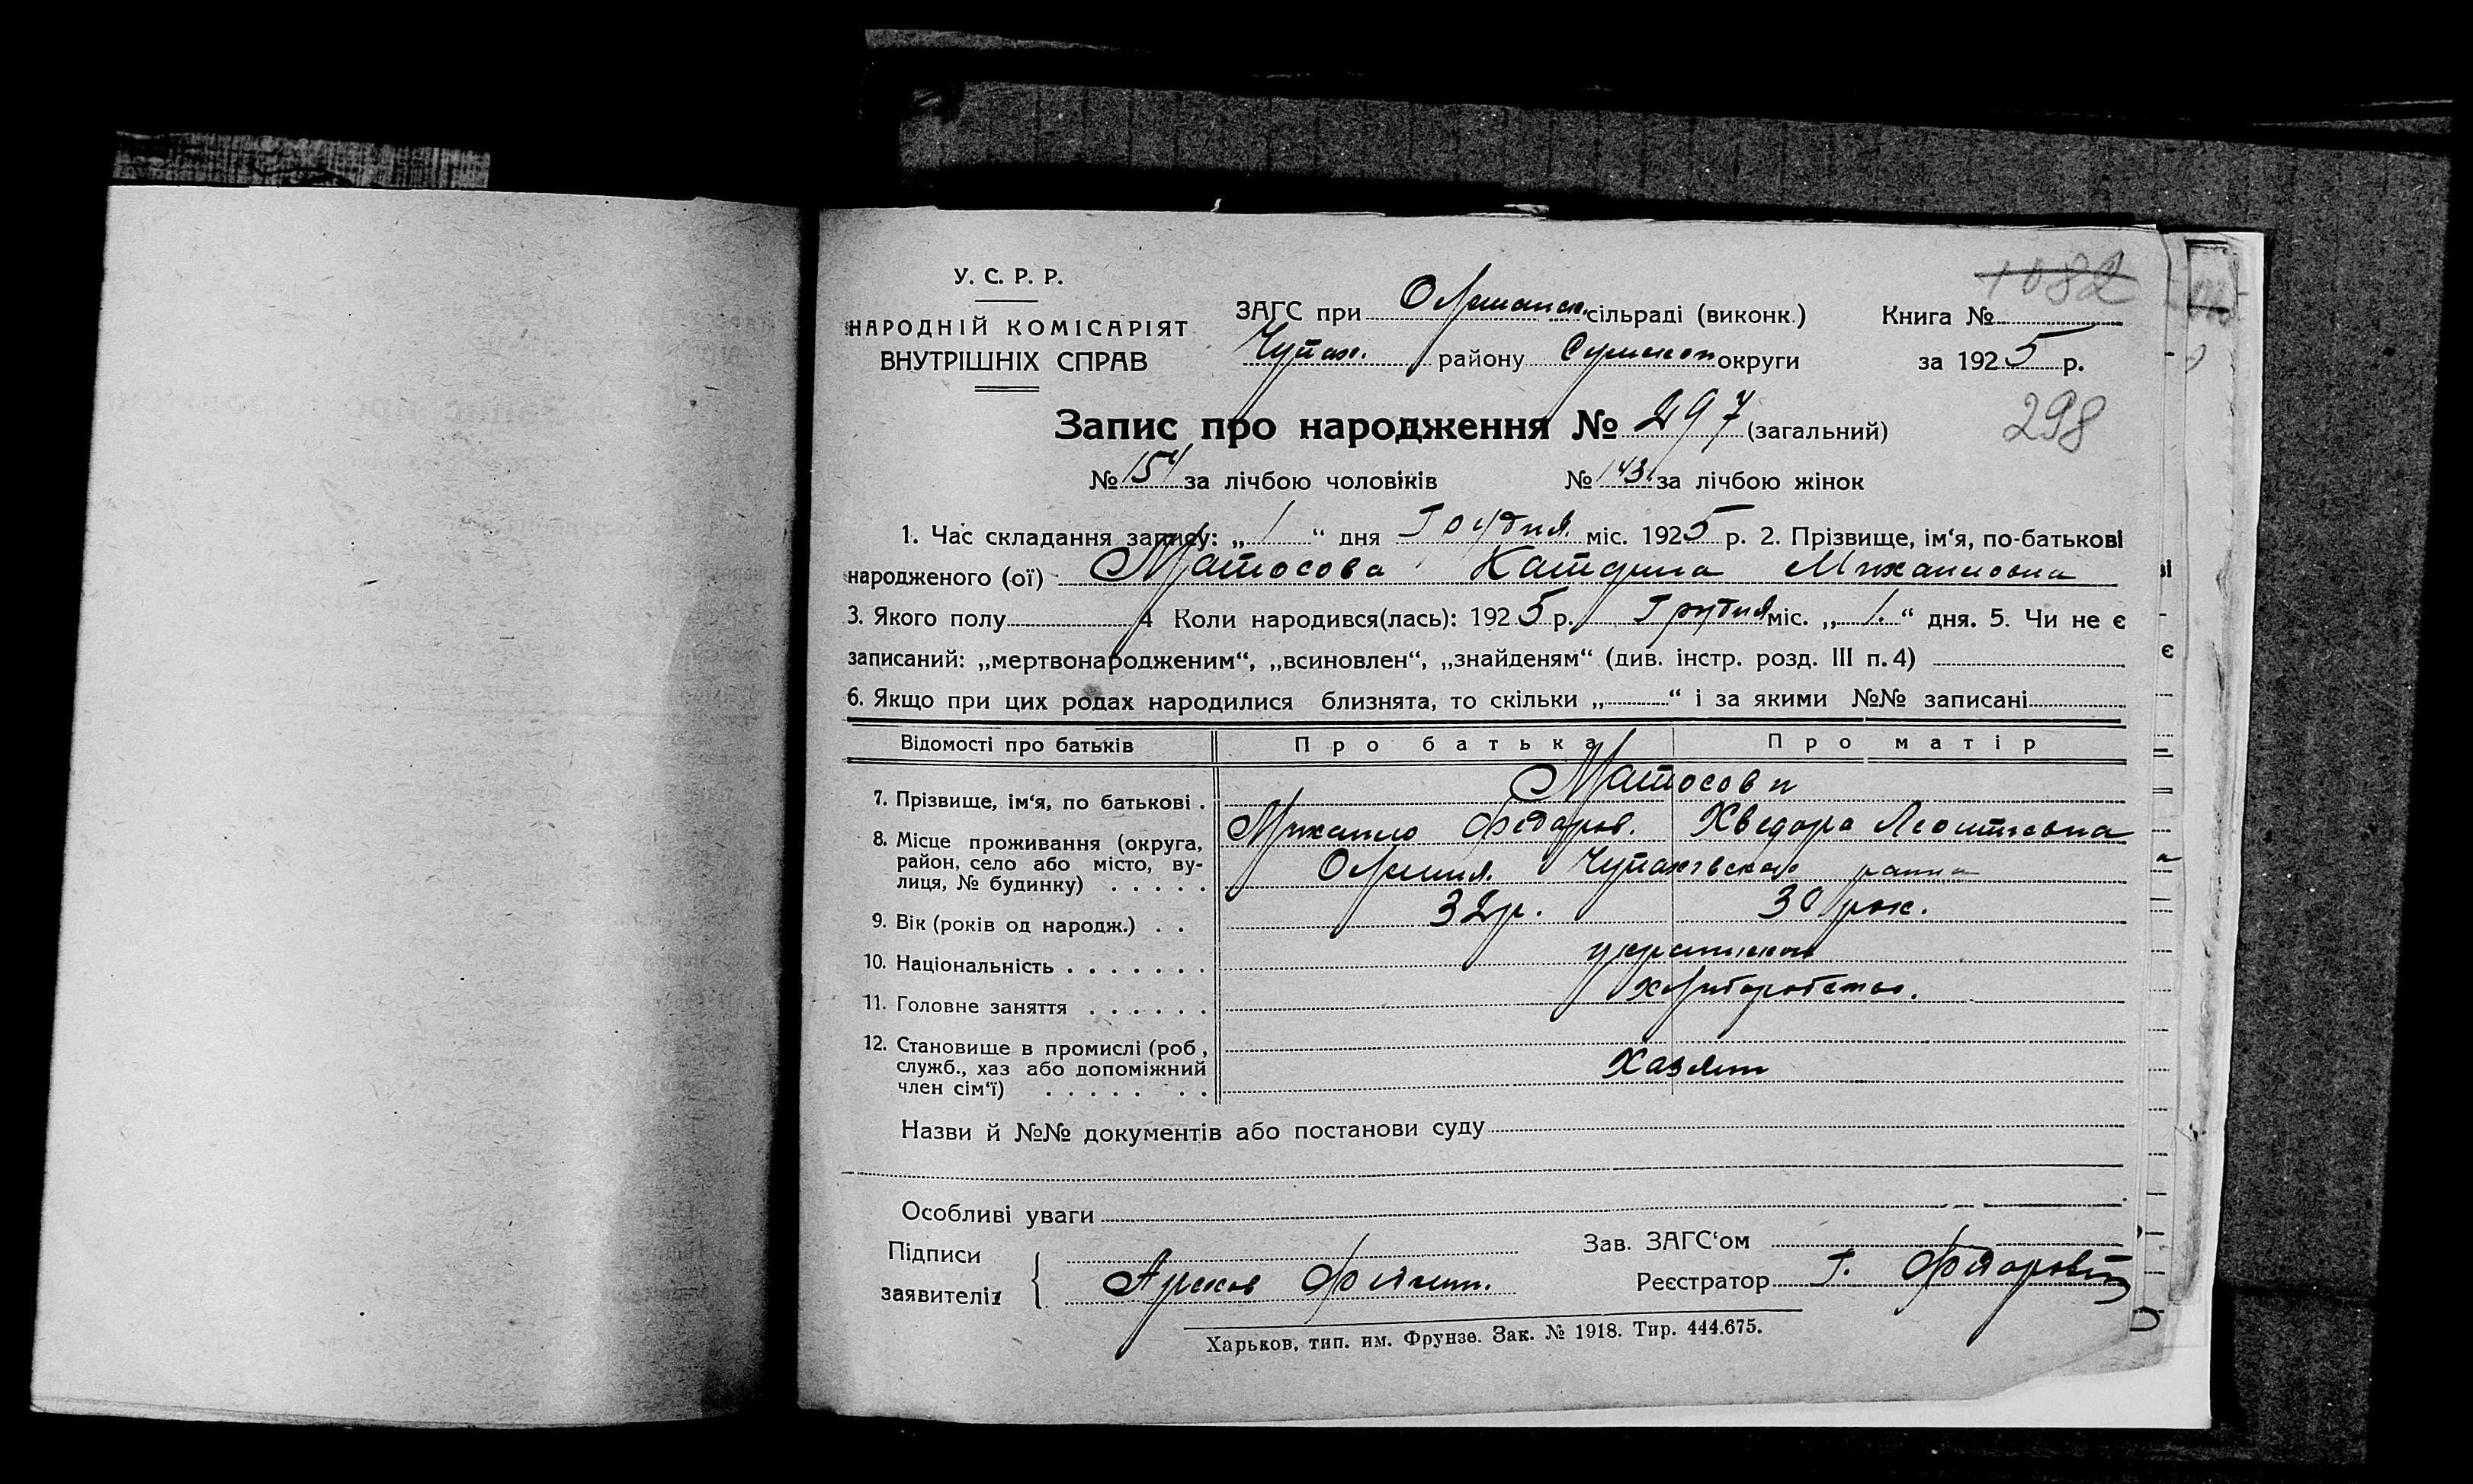 У. С. Р. Р.
НАРОДНІЙ КОМІСАРІЯТ
ВНУТРІШНІХ СПРАВ
ЗАГС при Олешанск. сільраді (виконк.)
Чупах. району Сумской округи
Книга № 1082
за 1925 р.
298
Запис про народження № 297 (загальний)
№ 154 за лічбою чоловіків № 143 за лічбою жінок
1. Час складання запису: „ 1 “ дня Грудня міс. 1925 р. 2. Прізвище, ім‘я, по-батькові
народженого (ої) Матосова Катерина Михаиловна
3. Якого полу 4 Коли народився(лась): 1925 р. Грудня міс. „ 1. “ дня. 5. Чи не є
записаний: „мертвонародженим“, „всиновлен“, „знайденям“ (див. інстр. розд. III п. 4)
6. Якщо при цих родах народилися близнята, то скільки „ “ і за якими №№ записані
Відомості про батьків Про батька Про матір
7. Прізвище, ім‘я, по батькові . Матосови
Михаило Федоров. Хведора Леонтиевна
8. Місце проживання (округа,
район, село або місто, ву-
лиця, № будинку) . . . . . Олешня Чупахівскаго раина
9. Вік (років од народж.) . . 32 р. 30 рок.
10. Національність . . . . . . .
11. Головне заняття . . . . . . хліборобство.
12. Становище в промислі (роб,
служб., хаз або допоміжний
член сім‘ї) . . . . . . . Хазяин
Назви й №№ документів або постанови суду
Особливі уваги
Підписи
заявителів
Зав. ЗАГС‘ом
Реєстратор Г.
Харьков, тип. им. Фрунзе. Зак. № 1918. Тир. 444.675.